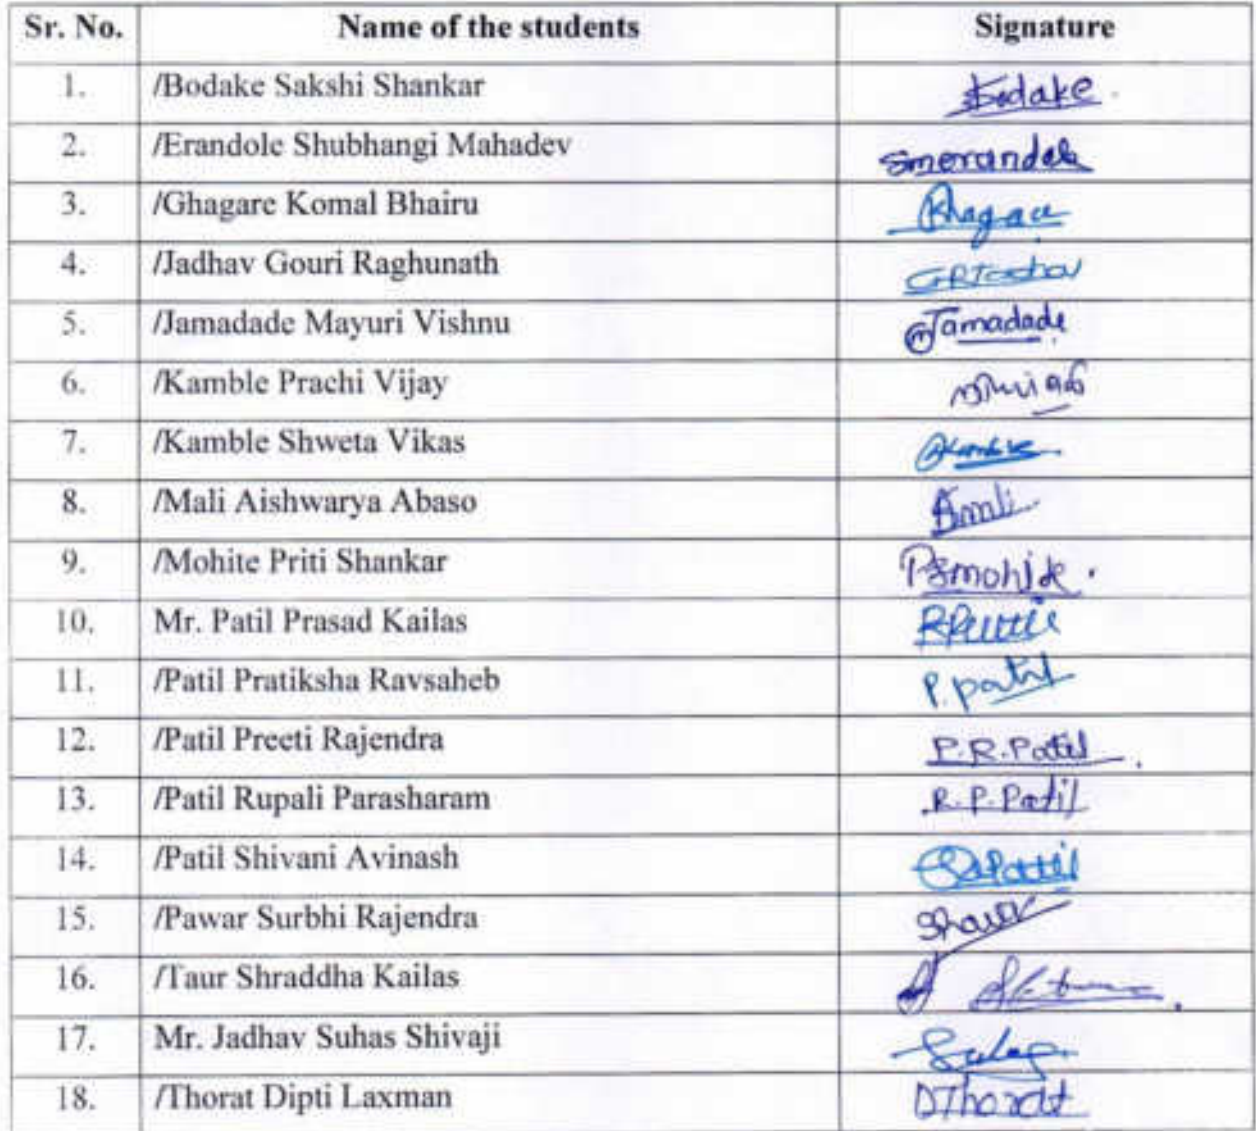 Sr. No. Name of the students Signature
1. /Bodake Sakshi Shankar Bodake
2. /Erandole Shubhangi Mahadev smerandole
3. /Ghagare Komal Bhairu
4. /Jadhav Gouri Raghunath
5. /Jamadade Mayuri Vishnu Jamadade
6. /Kamble Prachi Vijay
7. /Kamble Shweta Vikas
8. /Mali Aishwarya Abaso
9. /Mohite Priti Shankar PSmohite.
10. Mr. Patil Prasad Kailas
11. /Patil Pratiksha Ravsaheb P. patil
12. /Patil Preeti Rajendra P.R.Patil.
13. /Patil Rupali Parasharam R.P.Patil
14. /Patil Shivani Avinash
15. /Pawar Surbhi Rajendra
16. /Taur Shraddha Kailas
17. Mr. Jadhav Suhas Shivaji
18. /Thorat Dipti Laxman DThorat